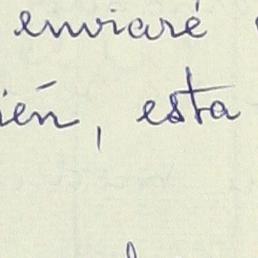 enviaré
ién, esta